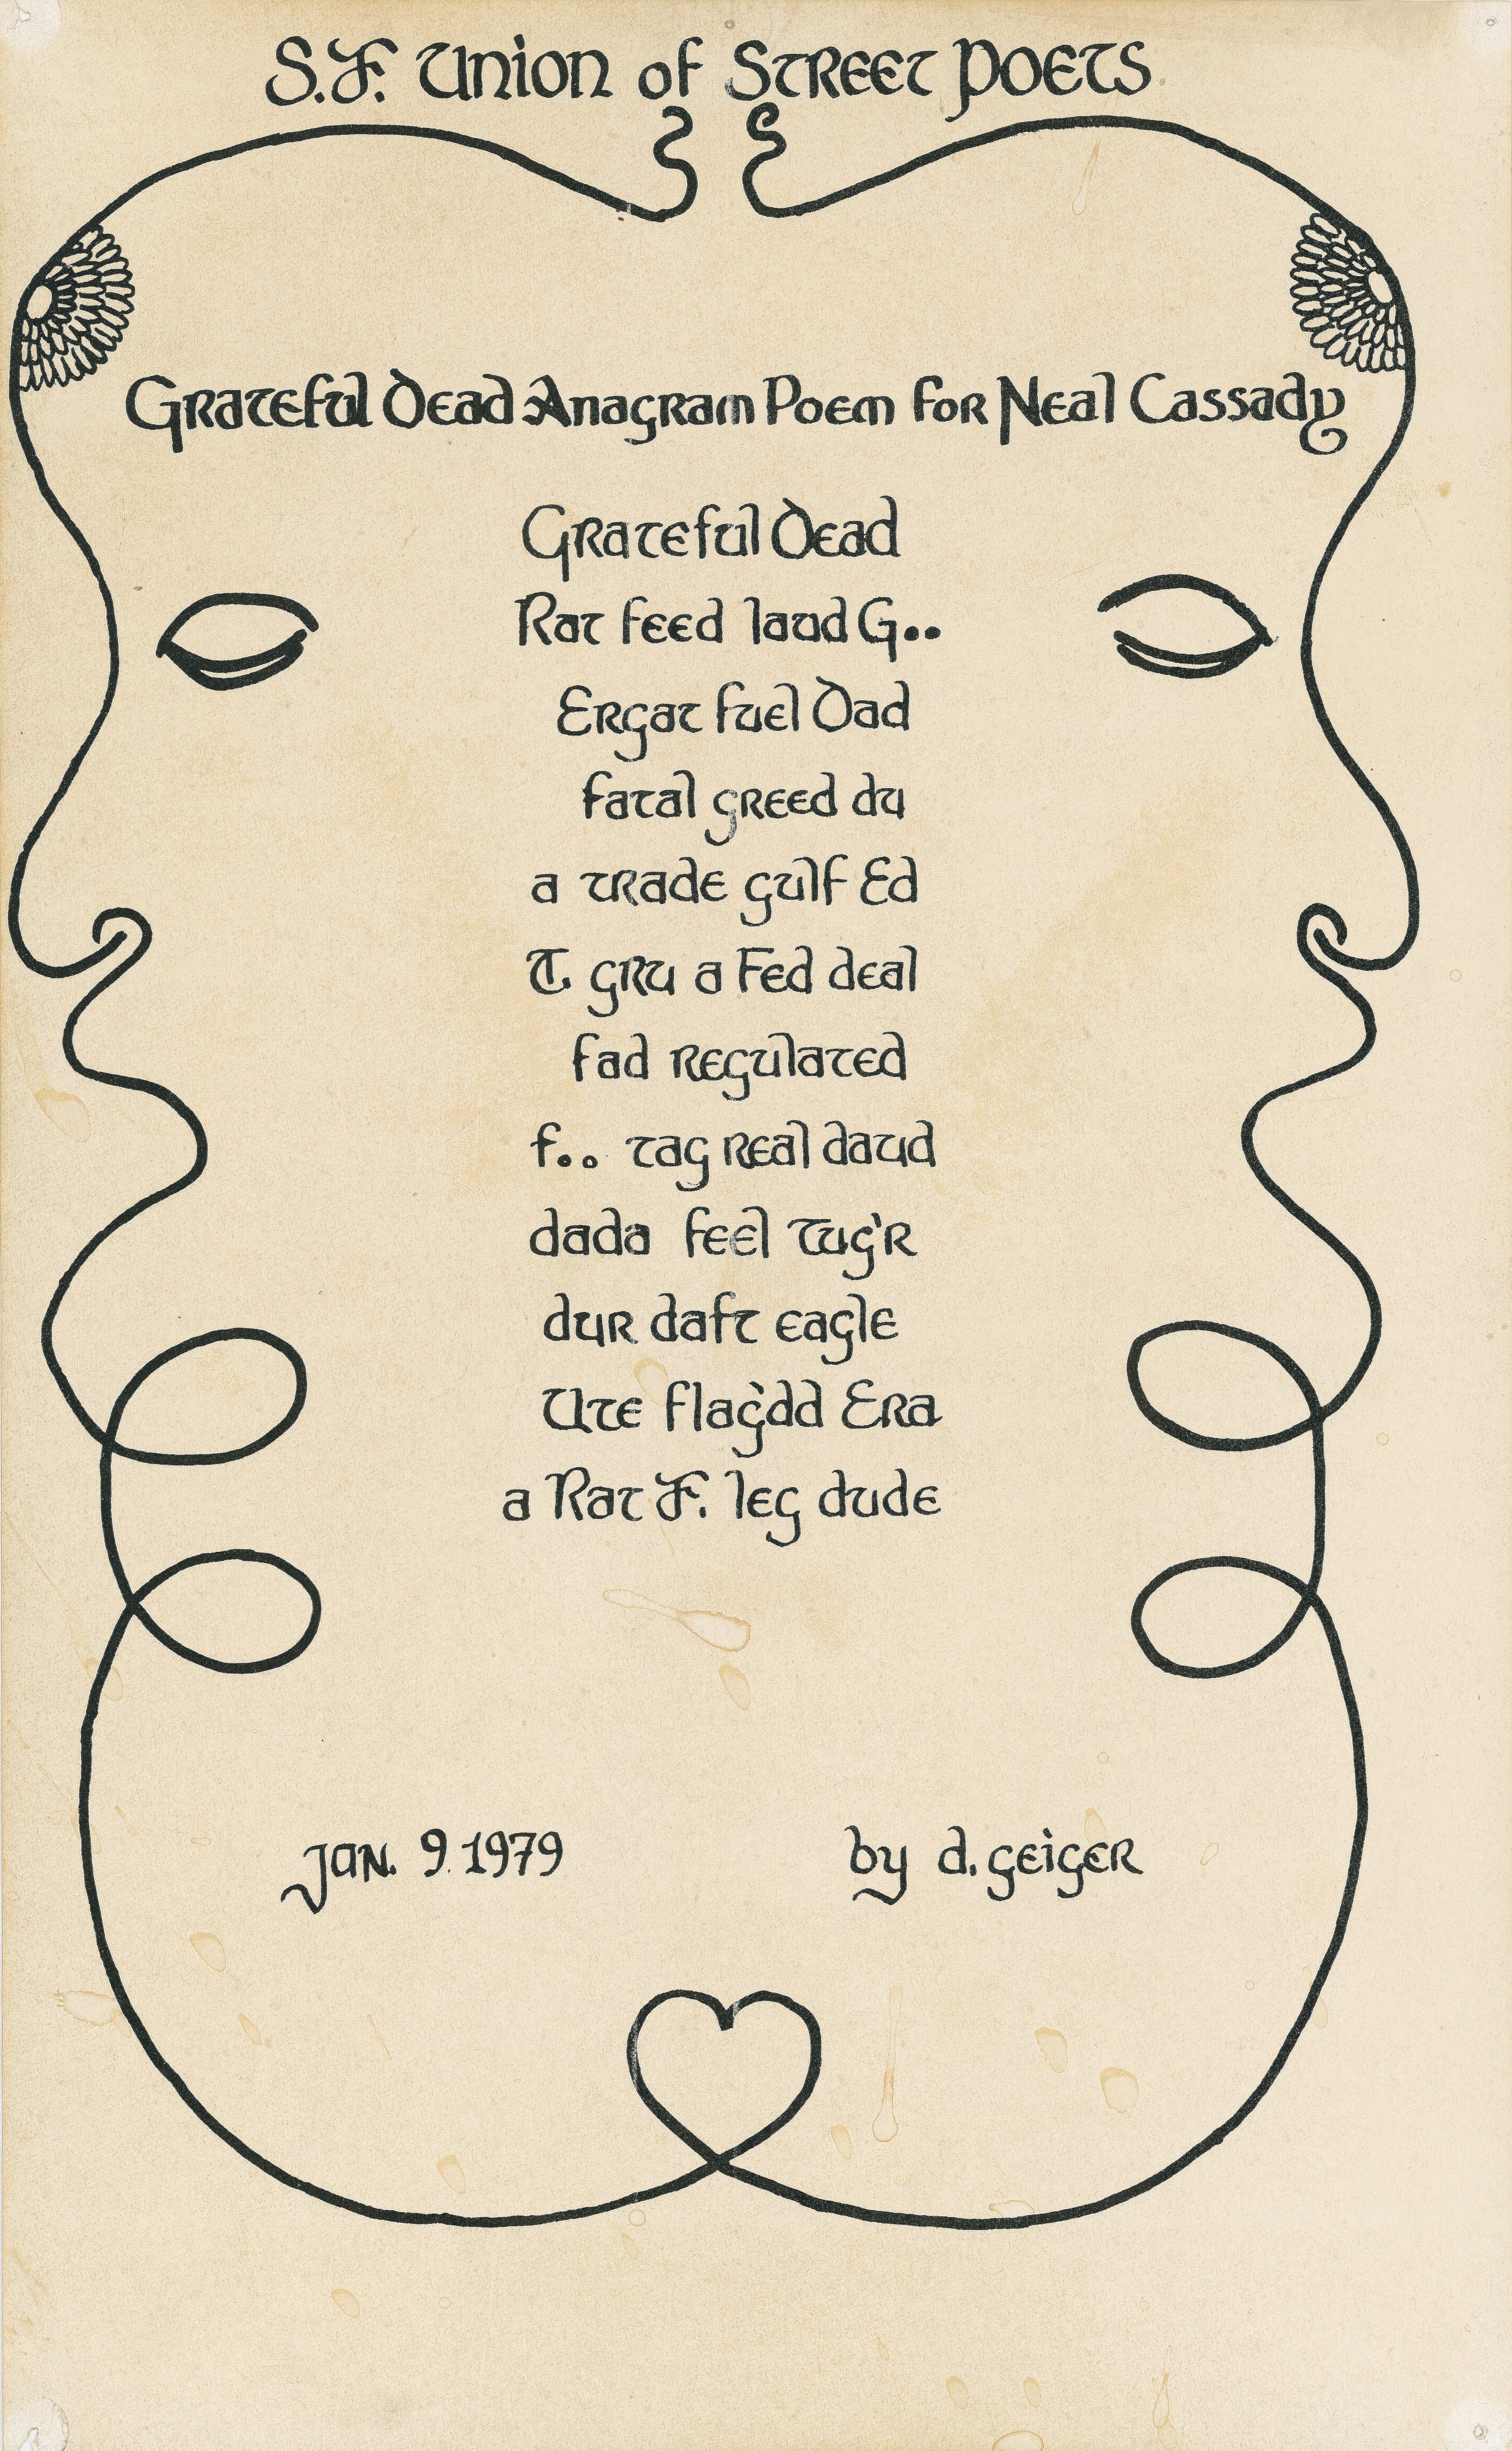 S.F. Union of Street Poets
Grateful Dead Anagram Poem for Neal Cassady
Grateful Dead
Rat feed laud G..
Ergat fuel Dad
fatal greed du
a trade gulf Ed
T. gru a Fed deal
fad regulated
f.. tag real daud
dada feel tug'r
dur daft eagle
Ute flag'dd Era
a Rat F. leg dude
Jan. 9. 1979
by d. geiger